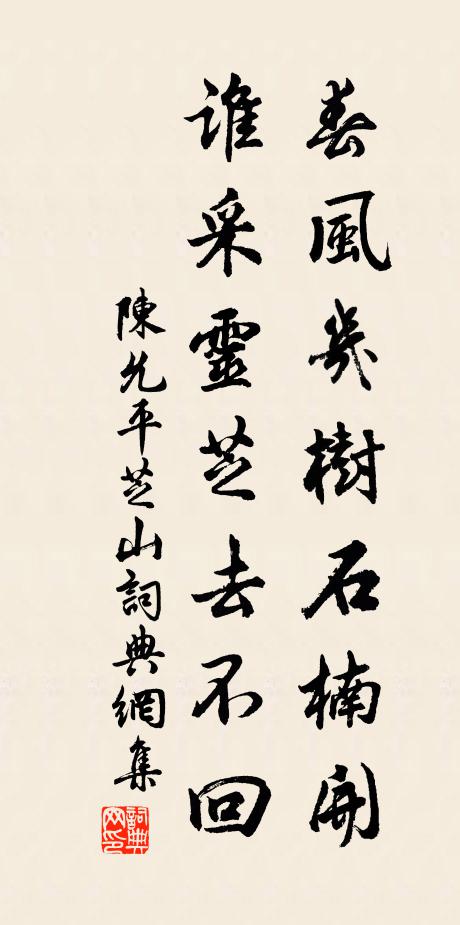 春風幾樹石楠開
誰采靈芝去不回
陳允平芝山詞典網集
詞典網印